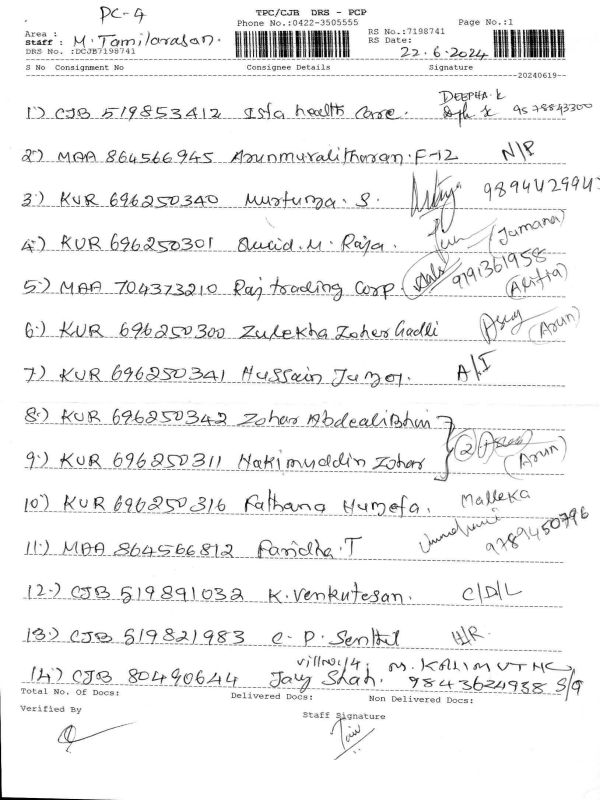 PC-4
TPC/CJB DRS - PCP
Phone No.:0422-3505555
Page No.:1
Area :
Staff : M. Tamilarasan.
RS No.:7198741
RS Date:
22.6.2024
DRS No. :DCJB7198741
S No Consignment No Consignee Details Signature
20240619--
DEEPHA.K
1.) CJB 519853412 Isfa health Care. 9578843300
2.) MAA 864566945 Arunmuralitharan.F-12 N/P
3.) KUR 696250340 Murtuza. S. 9894429943
4.) KUR 696250301 M. Raja. (Jamana)
5.) MAA 704373210 Raj trading Corp. 9191361958
6.) KUR 696250300 Zulekha Zoher Gadli (Arun)
7.) KUR 696250341 Hussain A/I
8.) KUR 696250342 Zohar Abdeali Bhai
9.) KUR 696250311 Hakimuddin Zohar (2) (Arun)
10.) KUR 696250316 Fathana Huzefa. Malleka
11.) MAA 864566812 Faridha.T 9789450796
12.) CJB 519891032 K. Venkutesan. C/D/L
13.) CJB 519821983 C. P. Senthil H/R.
14.) CJB 80490644 Jay Shah. 9843624938 S/G
Total No. Of Docs: Delivered Docs: Non Delivered Docs:
Verified By
Staff Signature